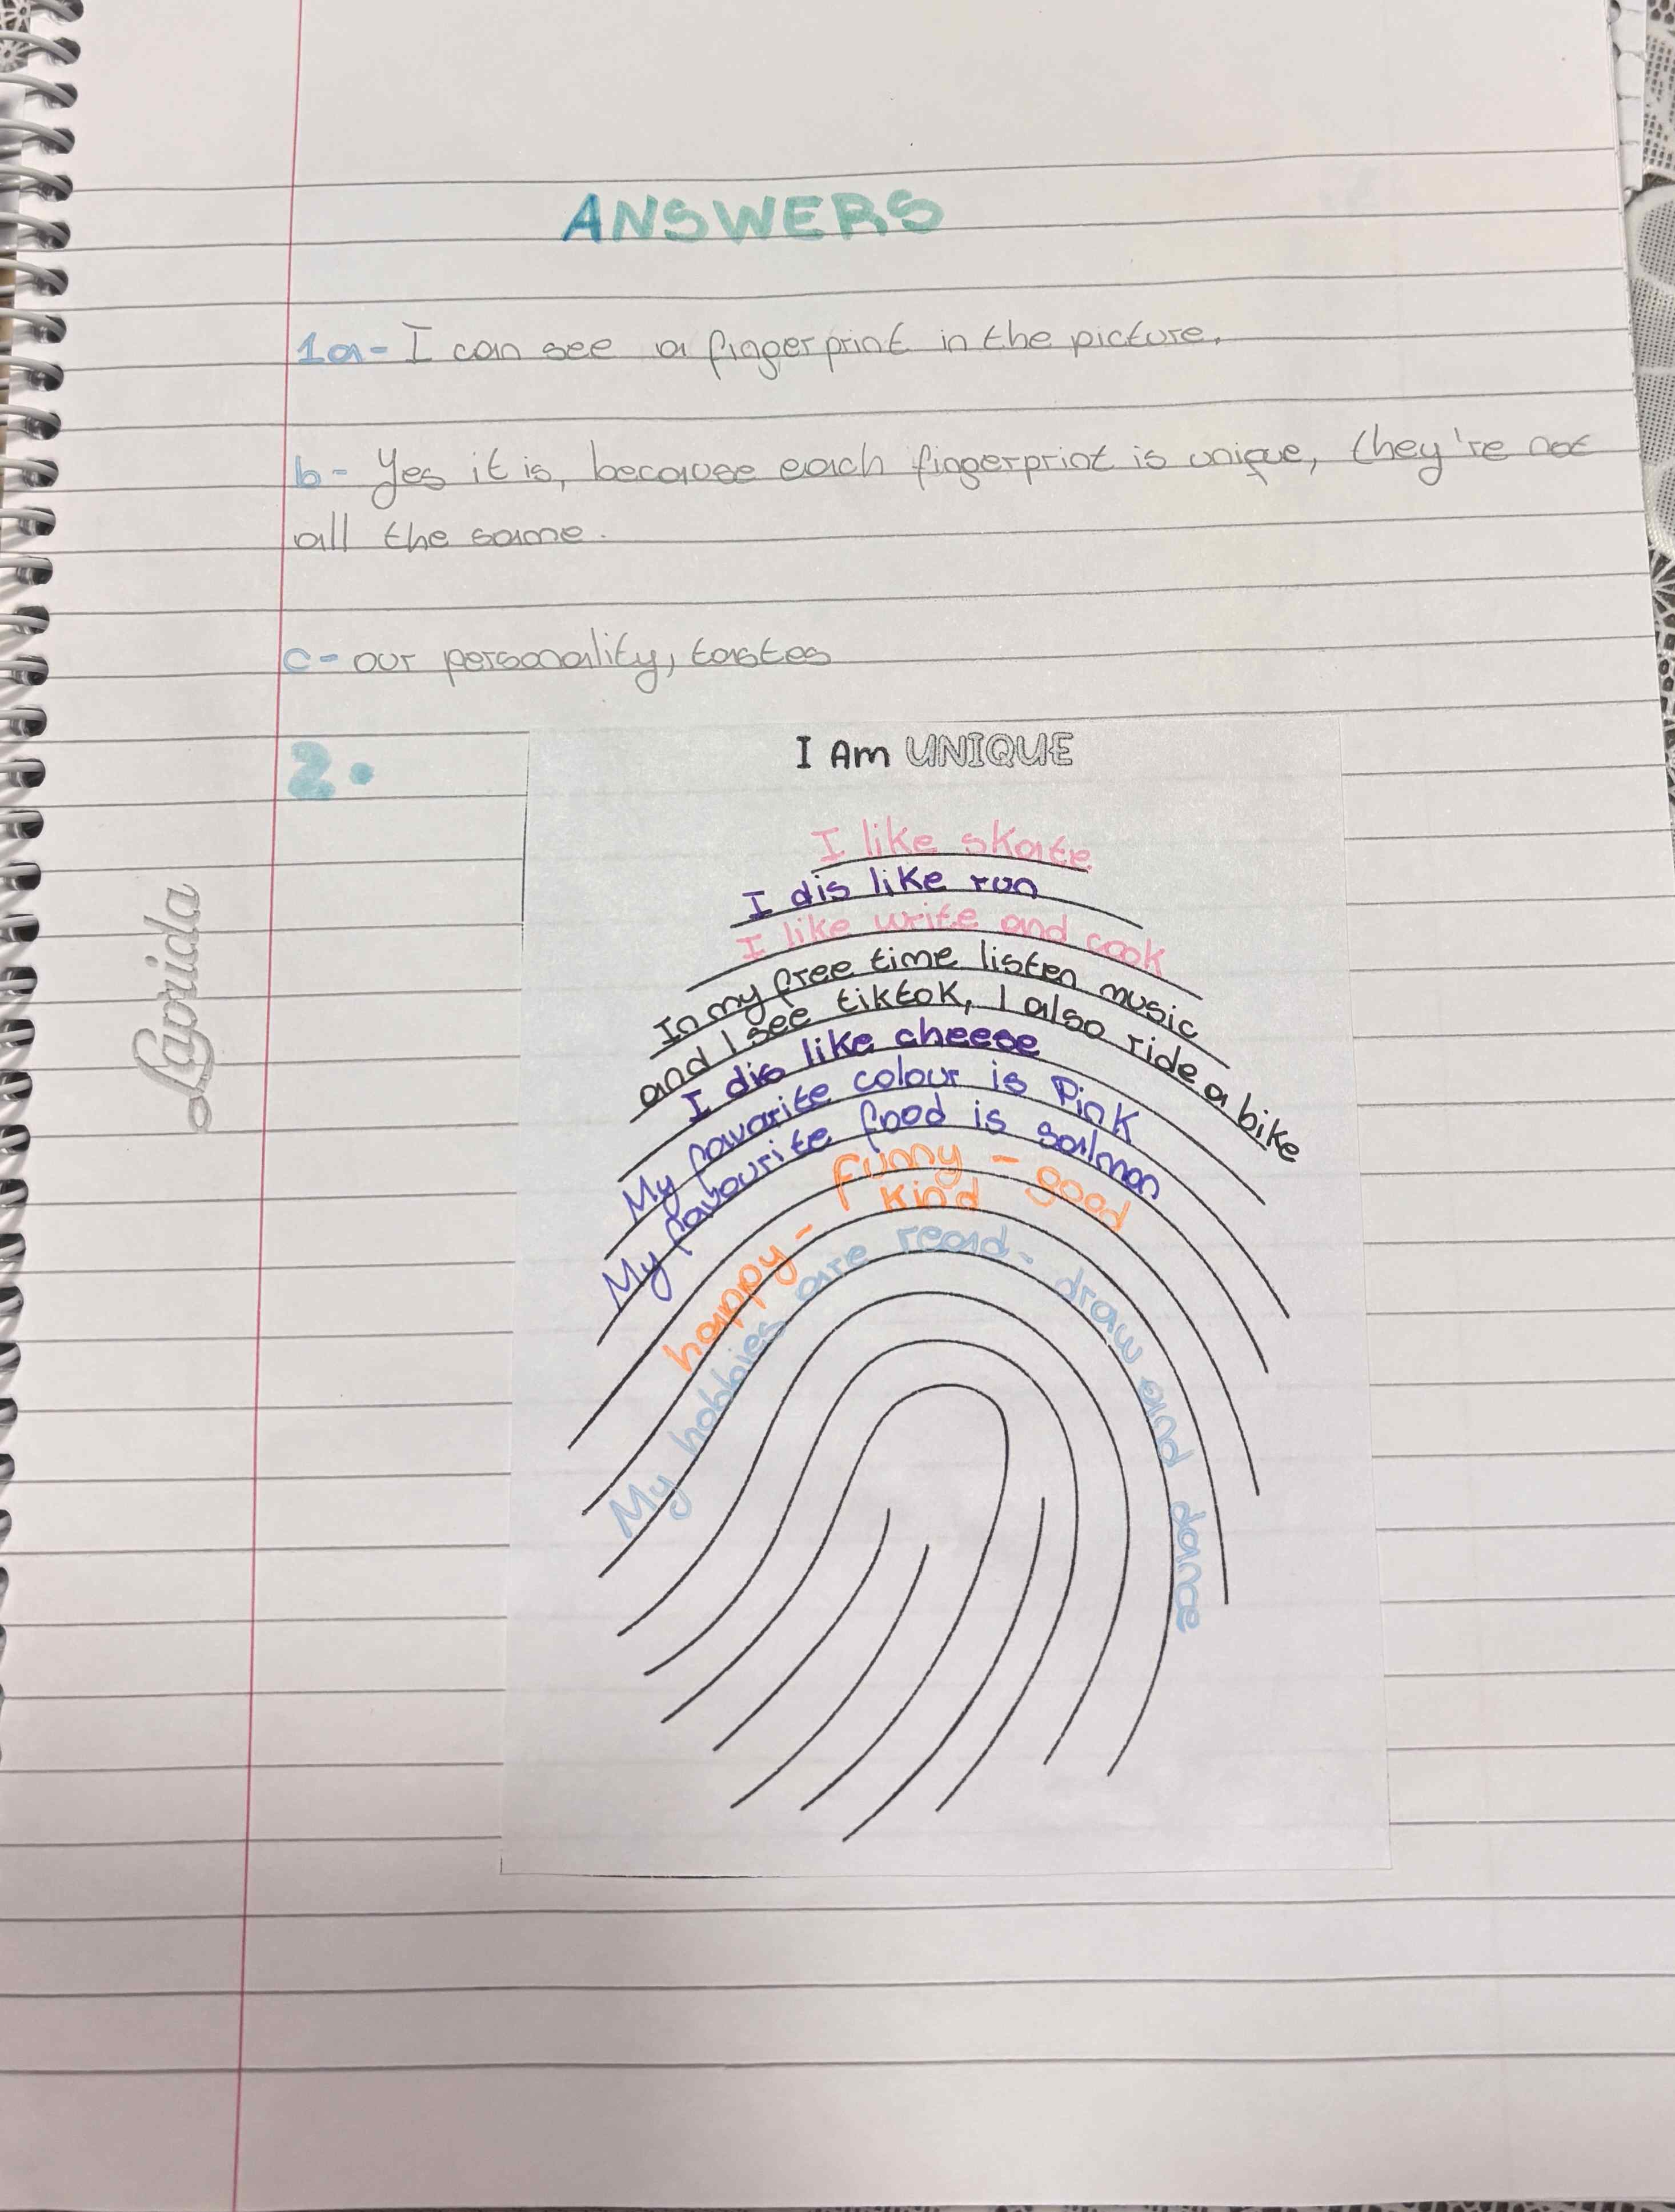 ANSWERS
1a- I can see a fingerprint in the picture.
b- Yes it is, because each fingerprint is unique, they're not
all the same.
c- our personality, tastes
2.
I Am UNIQUE
I like skate
I dis like run
I like write and cook
In my free time listen music
and I see tiktok, I also ride a bike
I dis like cheese
My favorite colour is Pink
My favourite food is salmon
happy - funny - good
kind
My hobbies are read - draw and dance
Laprida